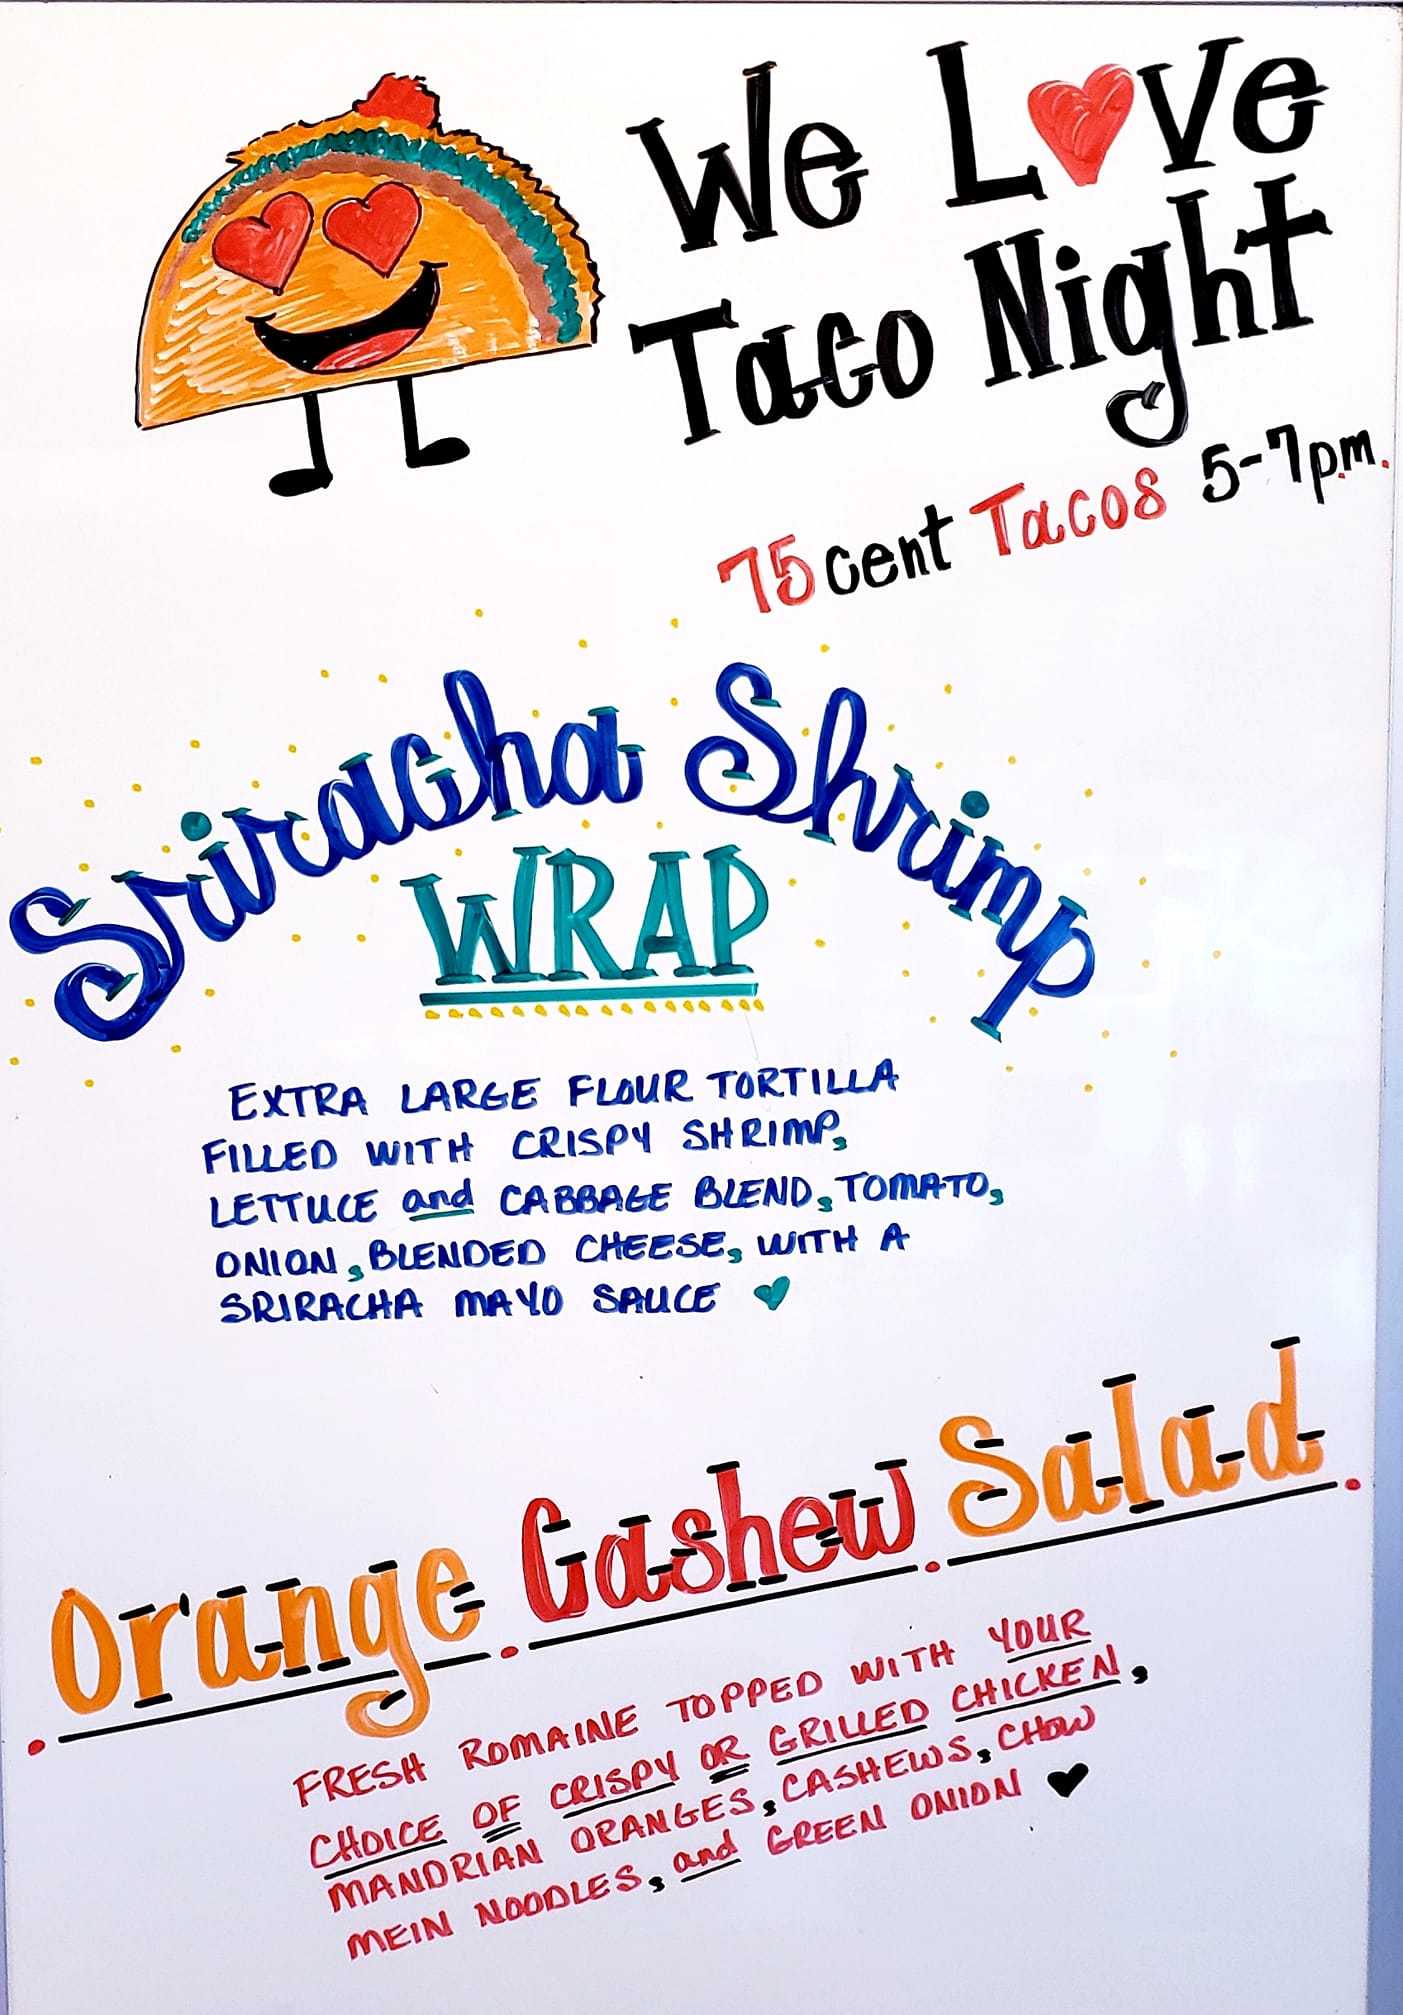 We Love
Taco Night
75 cent Tacos 5-7p.m.
Sriracha Shrimp
WRAP
EXTRA LARGE FLOUR TORTILLA
FILLED WITH CRISPY SHRIMP,
LETTUCE and CABBAGE BLEND, TOMATO,
ONION, BLENDED CHEESE, WITH A
SRIRACHA MAYO SAUCE
Orange Cashew Salad
FRESH ROMAINE TOPPED WITH YOUR
CHOICE OF CRISPY OR GRILLED CHICKEN,
MANDRIAN ORANGES, CASHEWS, CHOW
MEIN NOODLES, and GREEN ONION